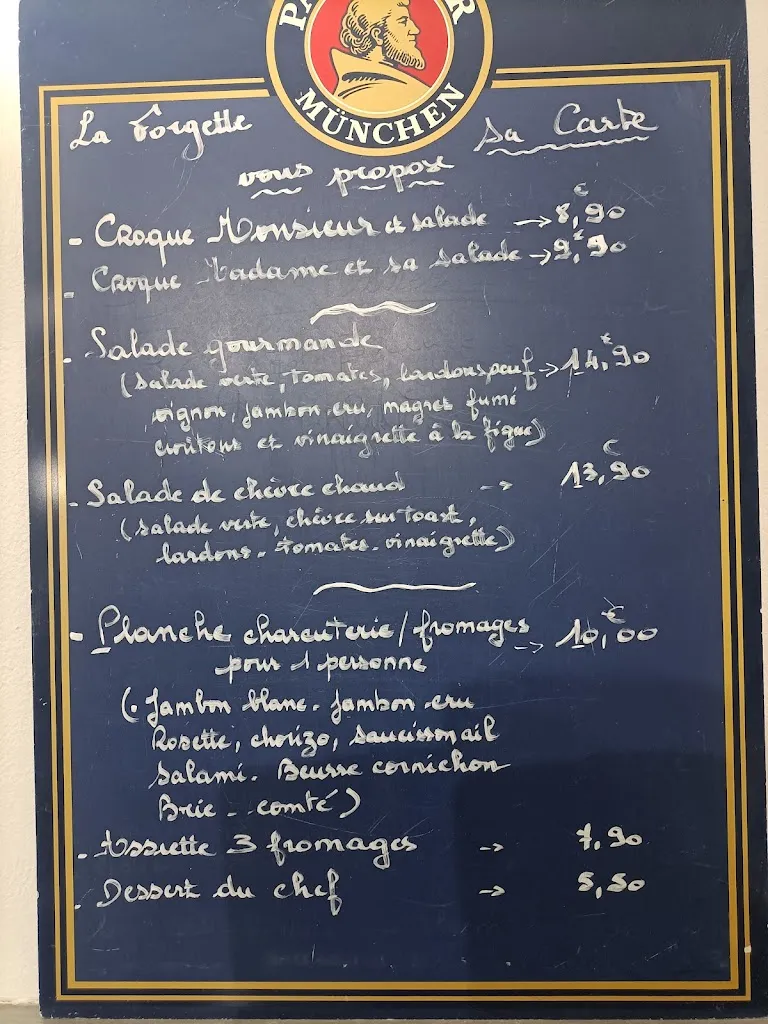 PA R
MÜNCHEN
La Forgette
vous propose
sa Carte
- Croque Monsieur et salade → 8,€90
- Croque Madame et sa salade → 9,€90
- Salade gourmande
(salade verte, tomates, lardons, oeuf → 14,€90
oignon, jambon cru, magret fumé
croûtons et vinaigrette à la figue)
- Salade de chèvre chaud -> 13,€90
(salade verte, chèvre sur toast,
lardons - tomates - vinaigrette)
- Planche charcuterie/fromages -> 10,€00
pour 1 personne
(. Jambon blanc - jambon cru
Rosette, chorizo, saucisson ail
salami - Beurre cornichon
Brie - comté)
- Assiette 3 fromages -> 7,90
- Dessert du chef -> 5,50